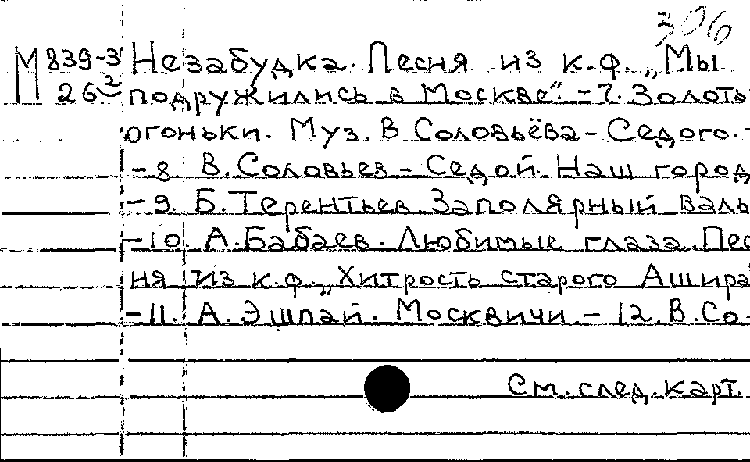 306
М 839-3 Незабудка. Песня из к.ф. „Мы
26² подружились в Москве". -7. Золоты
огоньки. Муз. В Соловьёва - Седого. -
-8 В. Соловьев - Седой. Наш город
-9. Б. Терентьев Заполярный валь
-10. А. Бабаев. Любимые глаза. Пес
ня из к.ф. „Хитрость старого Ашира"
-11. А. Эшпай. Москвичи - 12. В. Со-
См. след. карт.